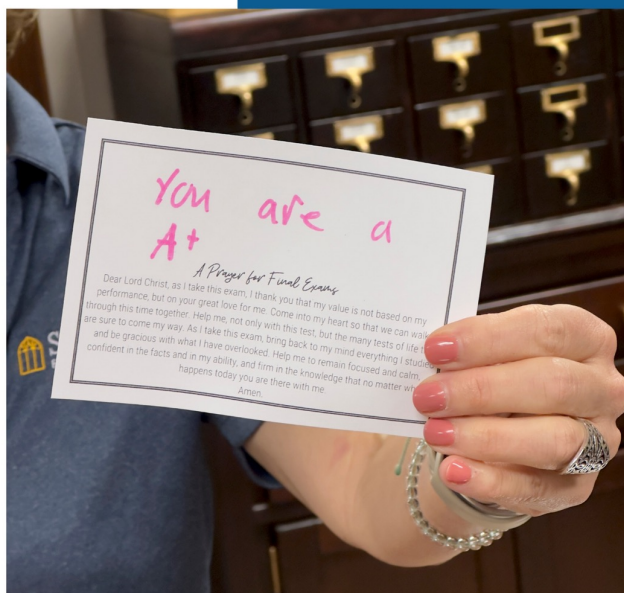 You are a
A+
A Prayer for Final Exams
Dear Lord Christ, as I take this exam, I thank you that my value is not based on my
performance, but on your great love for me. Come into my heart so that we can walk
through this time together. Help me, not only with this test, but the many tests of life
are sure to come my way. As I take this exam, bring back to my mind everything I studied
and be gracious with what I have overlooked. Help me to remain focused and calm,
confident in the facts and in my ability, and firm in the knowledge that no matter
happens today you are there with me.
Amen.